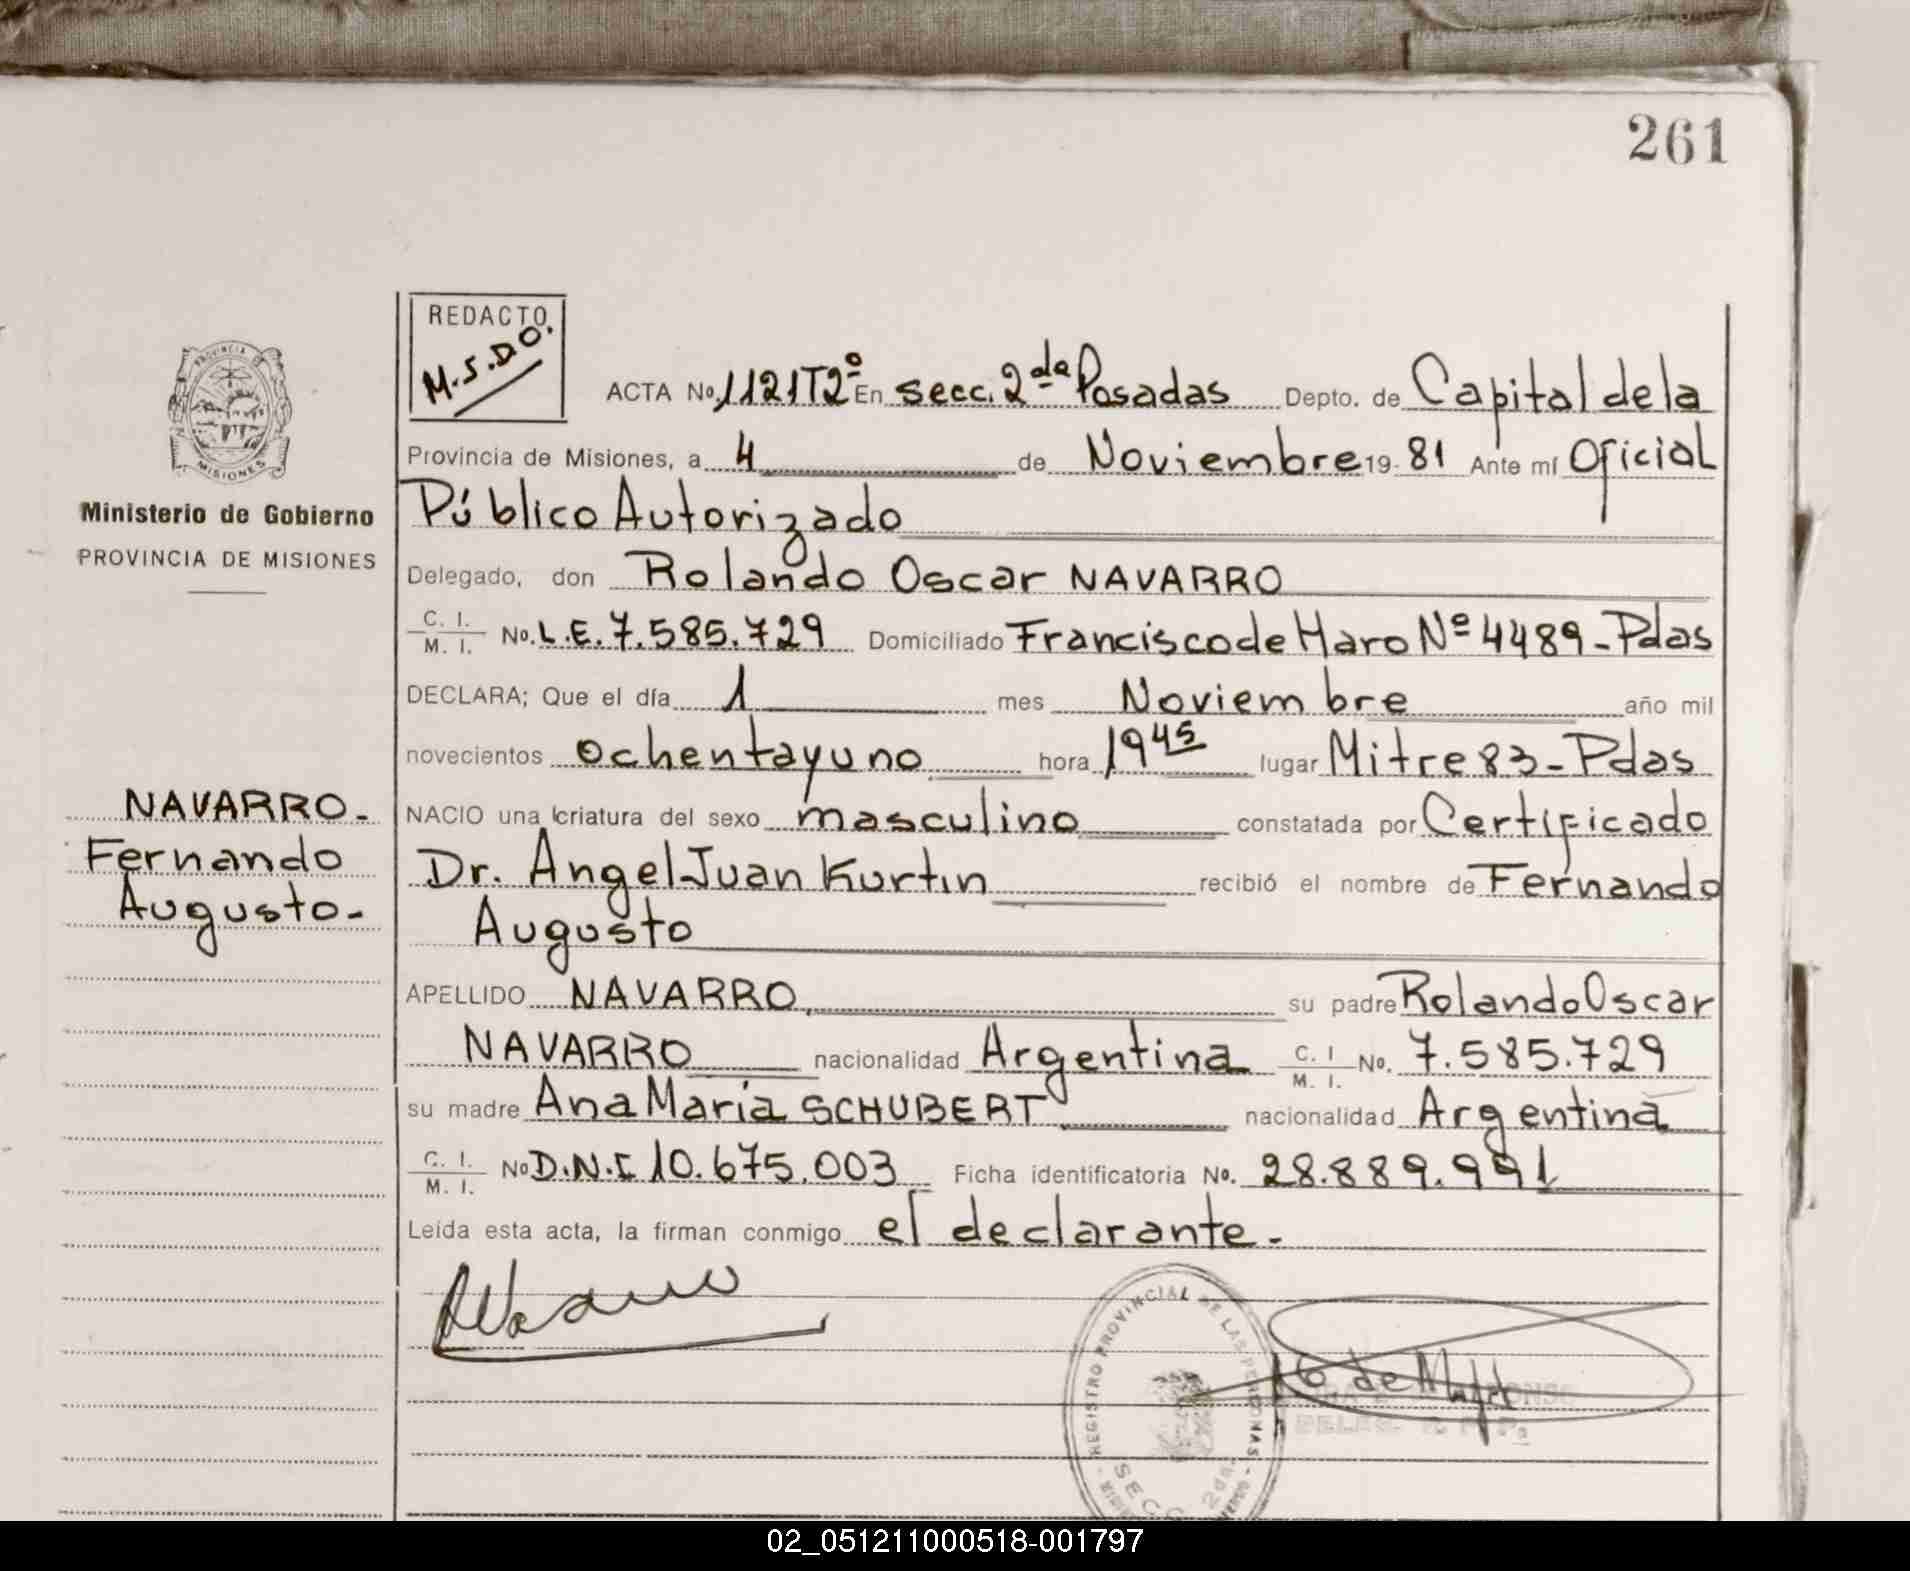 261
REDACTO
M.S.D.O.
ACTA No. 1121T2º En secc. 2da Posadas Depto. de Capital de la
Provincia de Misiones, a 4 de Noviembre 19 81 Ante mí Oficial
Público Autorizado
Delegado, don Rolando Oscar NAVARRO
C. I.
M. I. No. L.E. 7.585.729 Domiciliado Francisco de Haro Nº 4489 - Pdas
DECLARA; Que el día 1 mes Noviembre año mil
novecientos ochentayuno hora 19 45 lugar Mitre 83 - Pdas
NACIO una criatura del sexo masculino constatada por Certificado
Dr. Angel Juan Kurtin recibió el nombre de Fernando
Augusto
APELLIDO NAVARRO su padre Rolando Oscar
NAVARRO nacionalidad Argentina C. I.
M. I. No. 7.585.729
su madre Ana María SCHUBERT nacionalidad Argentina
C. I.
M. I. No D.N.I 10.675.003 Ficha identificatoria No. 28.889.991
Leída esta acta, la firman conmigo el declarante.-
PROVINCIA DE
MISIONES
Ministerio de Gobierno
PROVINCIA DE MISIONES
NAVARRO-
Fernando
Augusto-
REGISTRO PROVINCIAL DE LAS PERSONAS
SECC. 2da.
02_051211000518-001797